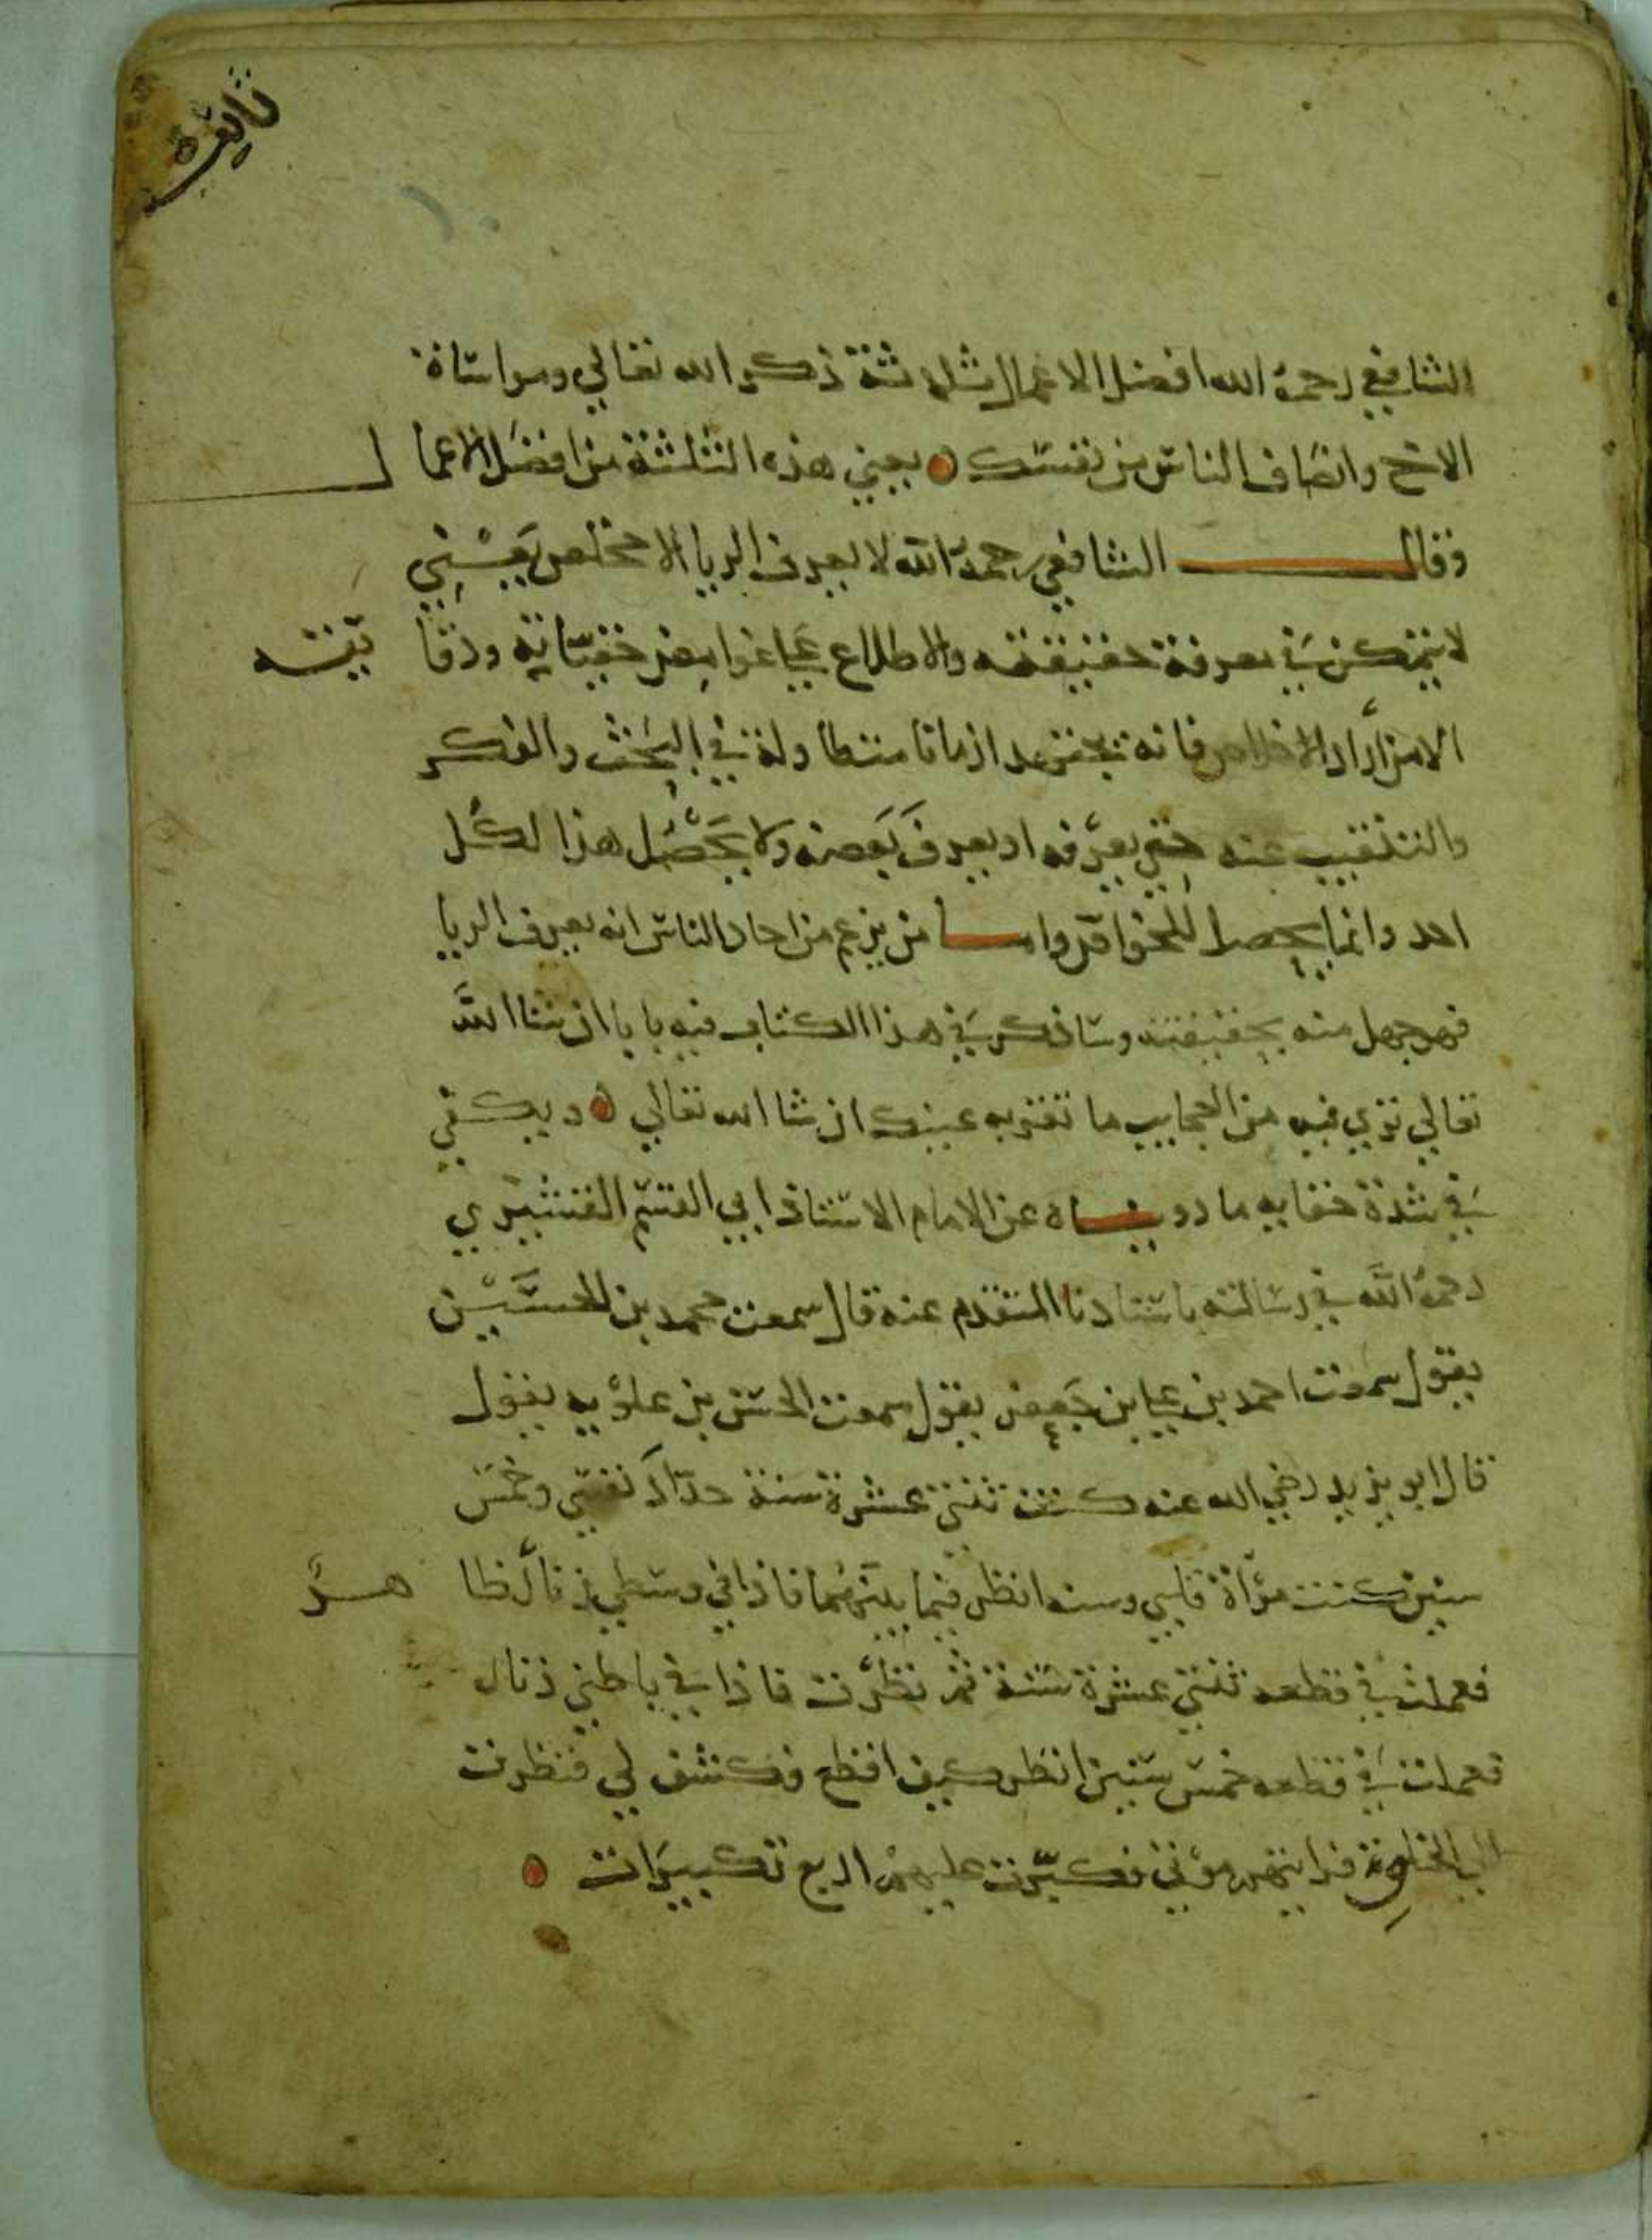 الشافعي رحمه الله افضل الاعمال ثلاثة ذكر الله تعالي ومواساة
الاخ وانصاف الناس من نفسك يعني هذه الثلثة من افضل الاعمال
وقال الشافعي رحمه الله لا يعرف الريا الا مخلص يعني
لا يتمكن في معرفة حقيقته والاطلاع على غوامض خفياته ودقايقه
الا من اراد الاخلاص فانه يجتهد ازمانا متطاولة في البحث والفكر
والتنقيب عنه حتى يعرفه او يعرف بعضه ولا يحصل هذا لكل
احد وانما يحصل للخواص واما من يزعم من احاد الناس انه يعرف الريا
فهو جهل منه بحقيقته وساذكر في هذا الكتاب فيه بابا ان شا الله
تعالي تري فيه من العجايب ما تقر به عينك ان شا الله تعالي ويكفي
في شدة خفايه ما رويناه عن الامام الاستاذ ابي القسم القشيري
رحمه الله في رسالته باسنادنا المتقدم عنه قال سمعت محمد بن الحسين
يقول سمعت احمد بن علي بن جعفر يقول سمعت الحسن بن علويه يقول
قال ابو يزيد رضي الله عنه كنت ثنتي عشرة سنة حداد نفسي وخمس
سنين كنت مرآة قلبي وسنه انظر فيما بينهما فاذا في وسطي زنار ظاهر
فعملت في قطعه ثنتي عشرة سنة ثم نظرت فاذا في باطني زنار
فعملت في قطعه خمس سنين انظر كيف اقطع فكشف لي فنظرت
الي الخلق فرايتهم موتي فكبرت عليهم اربع تكبيرات